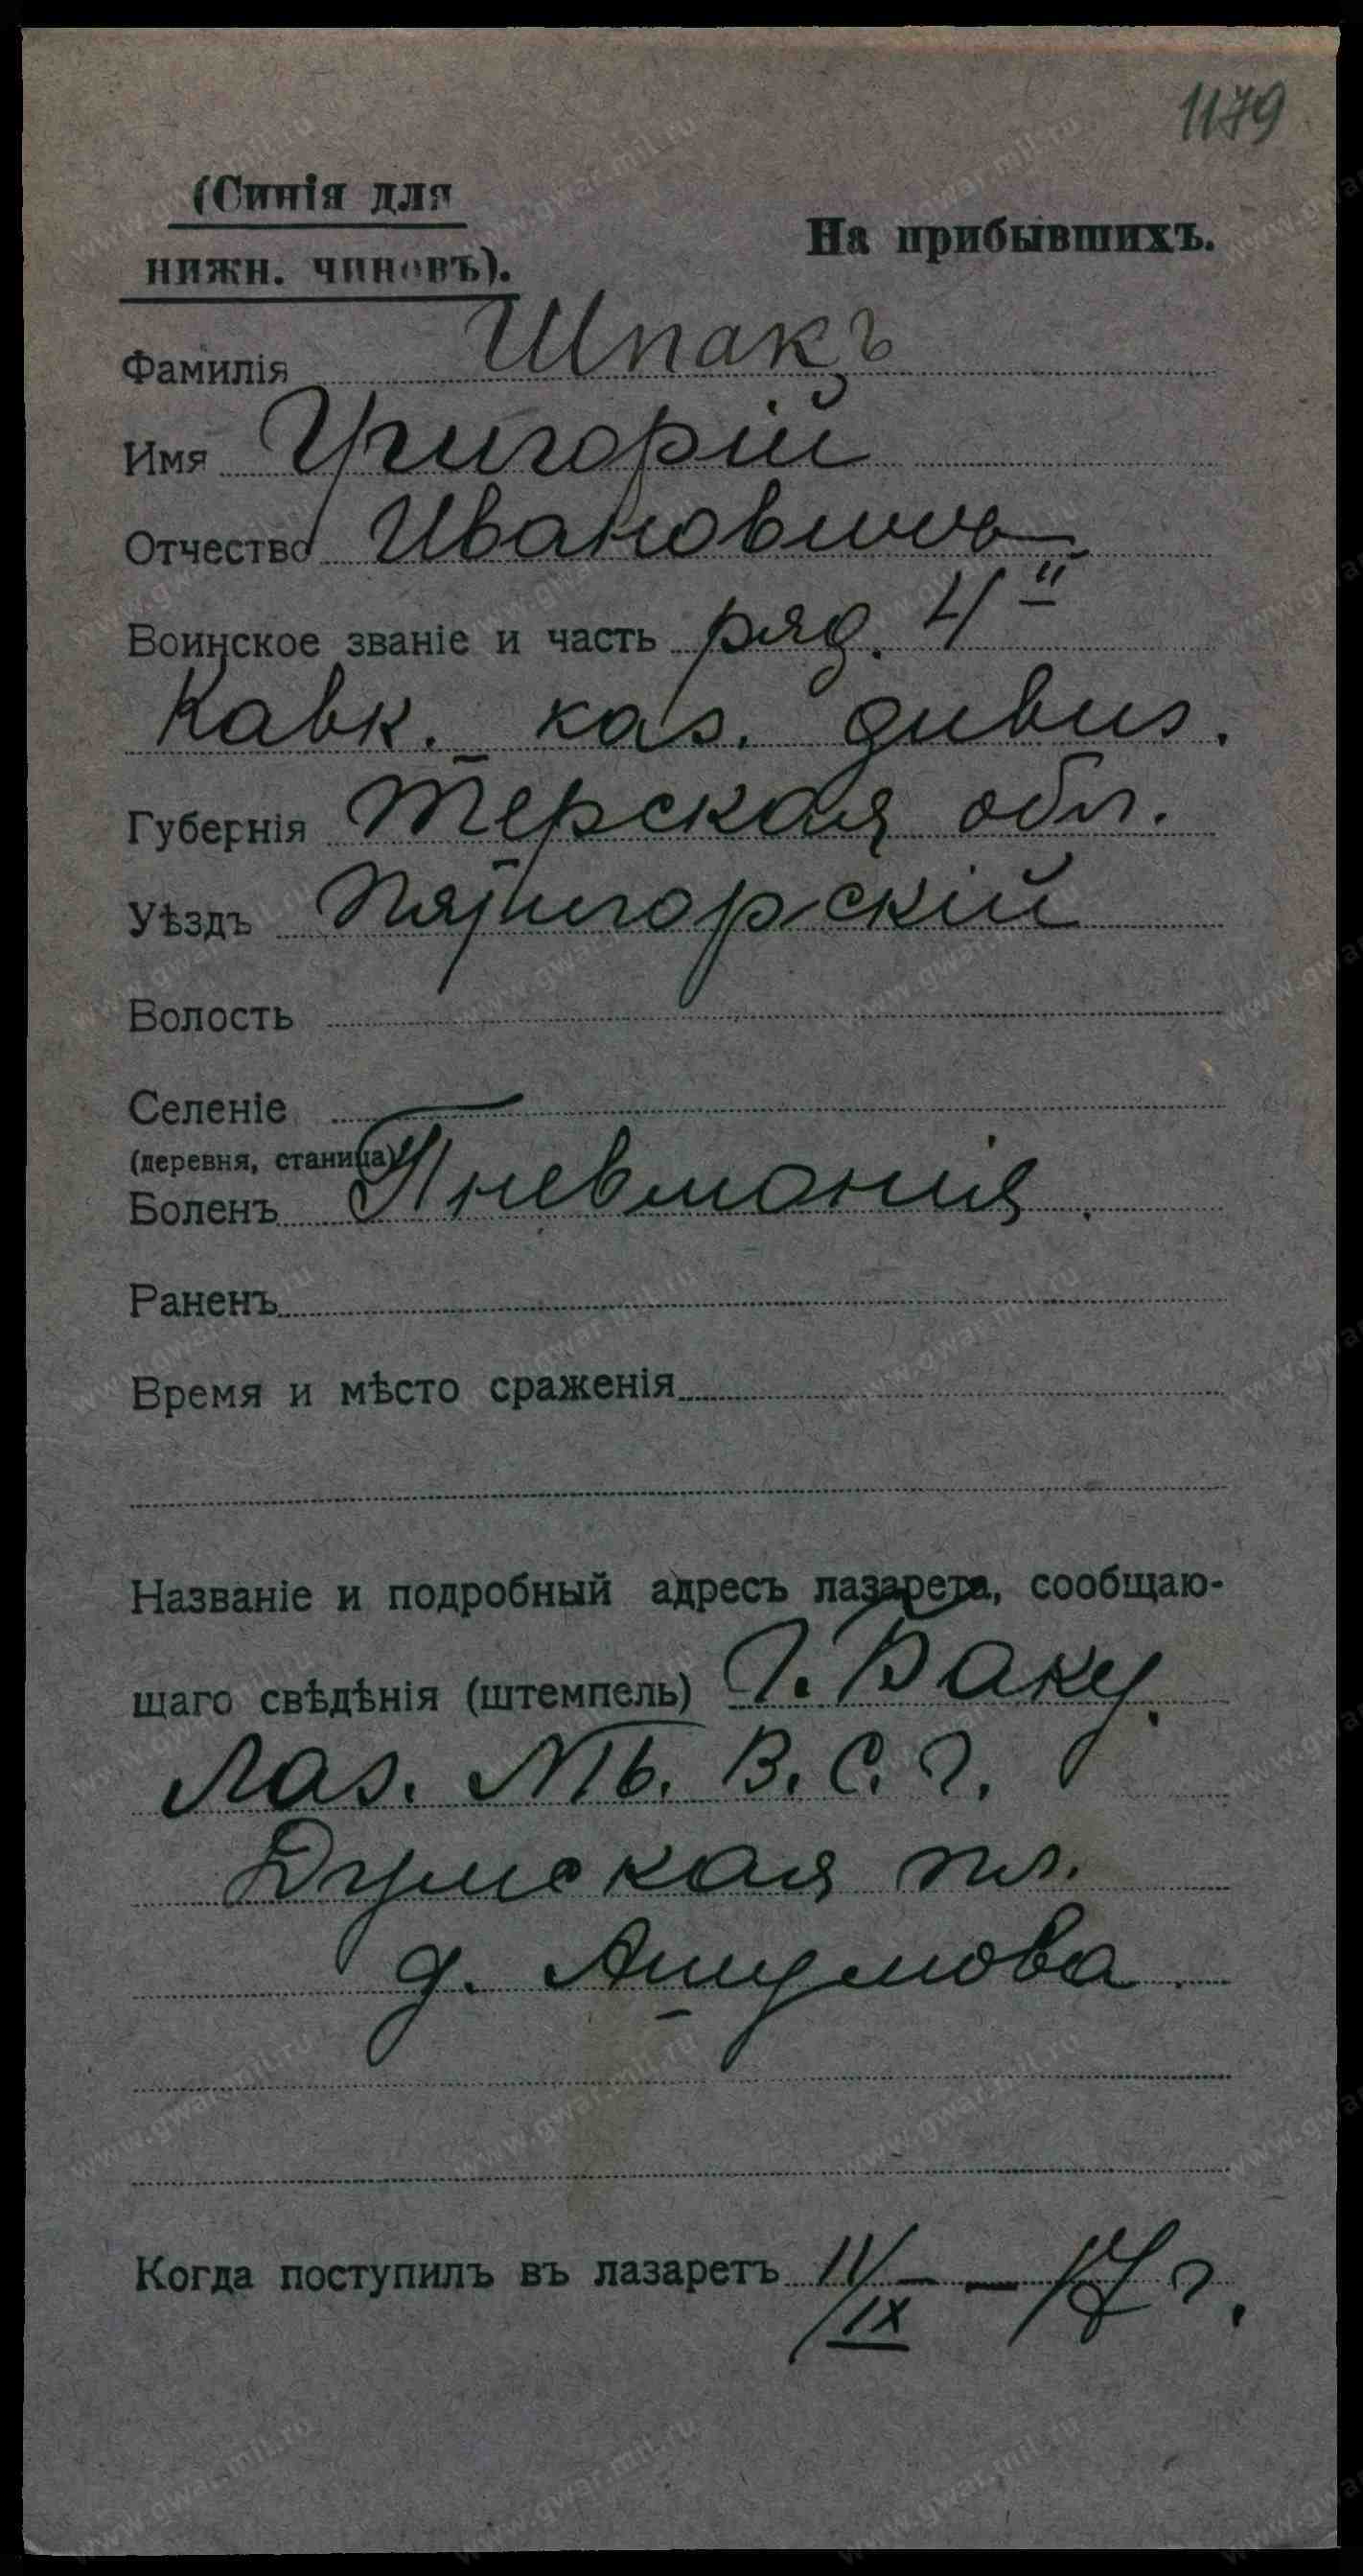 1179
(Синія для
нижн. чиновъ).
На прибывшихъ.
Фамилія Шпакъ
Имя Григорій
Отчество Ивановичъ
Воинское званіе и часть ряд. 4й
Кавк. каз. дивиз.
Губернія Терская обл.
Уѣздъ Пятигорскій
Волость
Селеніе
(деревня, станица)
Боленъ Пневмонія.
Раненъ
Время и мѣсто сраженія
Названіе и подробный адресъ лазарета, сообщаю-
щаго свѣдѣнія (штемпель) г. Баку.
Лаз. В. С. Г.
Думская пл.
д. Ашумова
Когда поступилъ въ лазаретъ IX — 17 г.
www.gwar.mil.ru